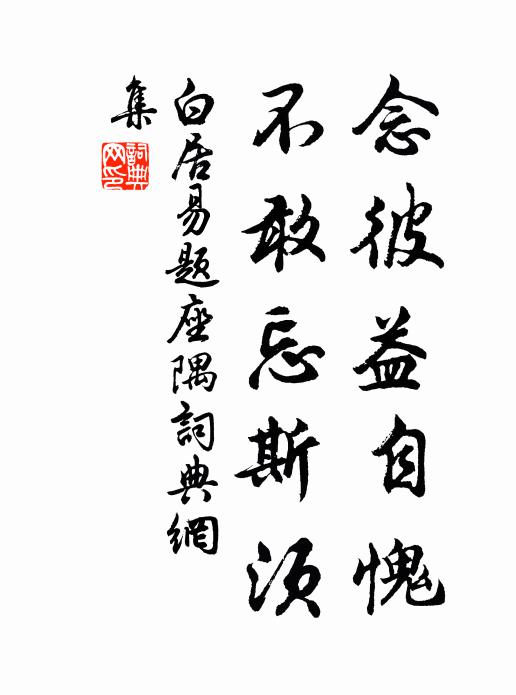 念彼益自愧
不敢忘斯须
白居易题座隅詞典網
集
詞典网印